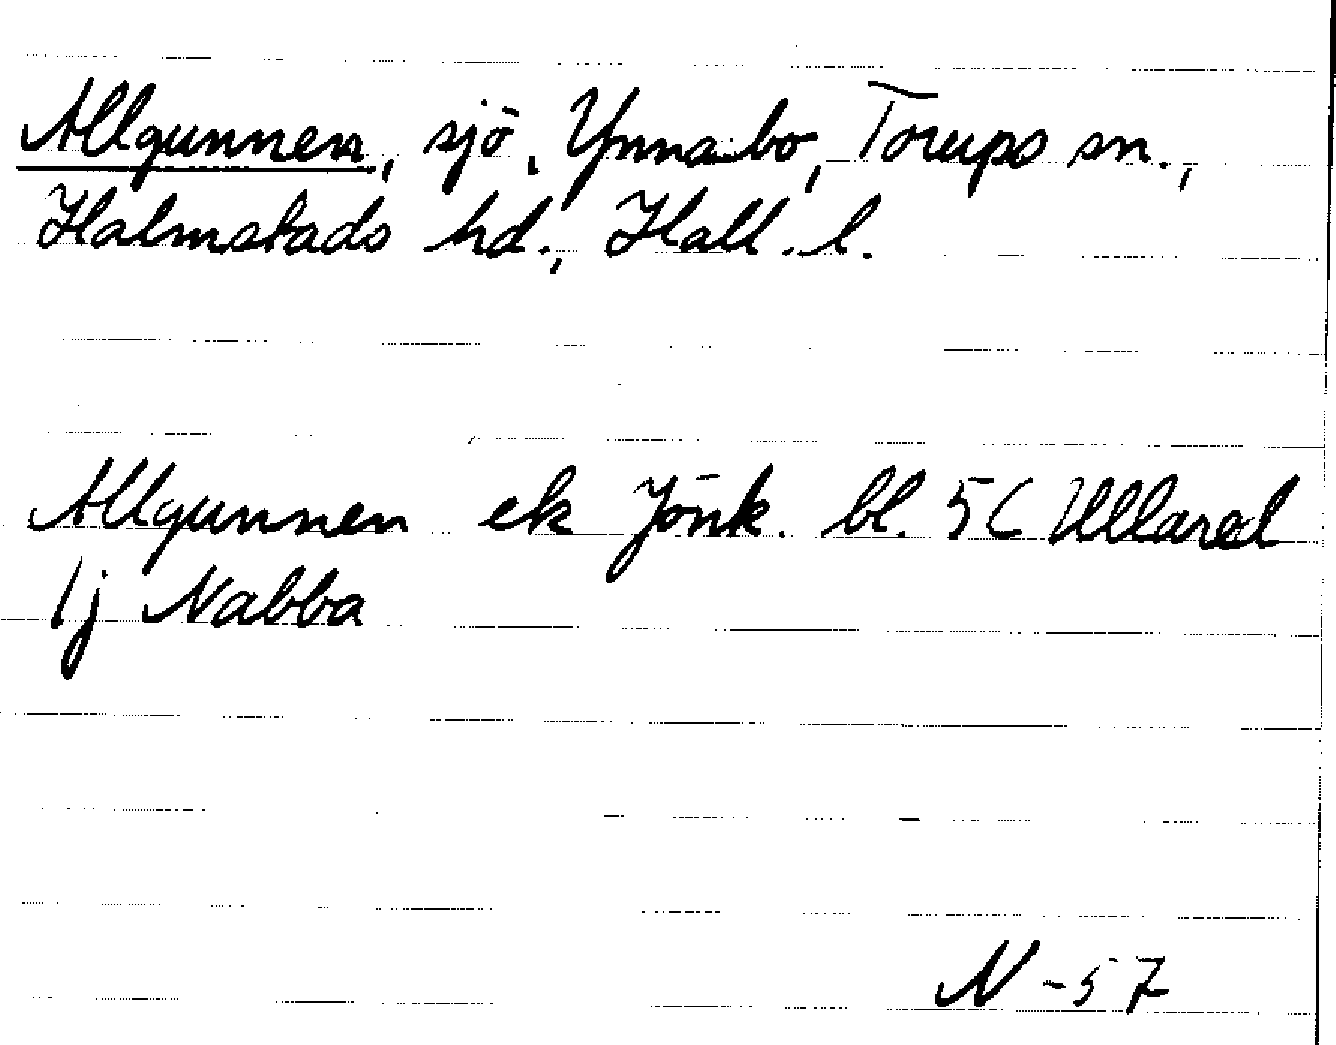 Allgunnen, sjö, Ynnabo, Torups sn.,
Halmstads hd., Hall. l.
Allgunnen ek Jönk. bl. 5C Ullared
1j Nabba
N -57